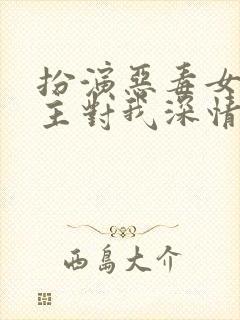 扮演惡毒女
主對我深情
西島大介